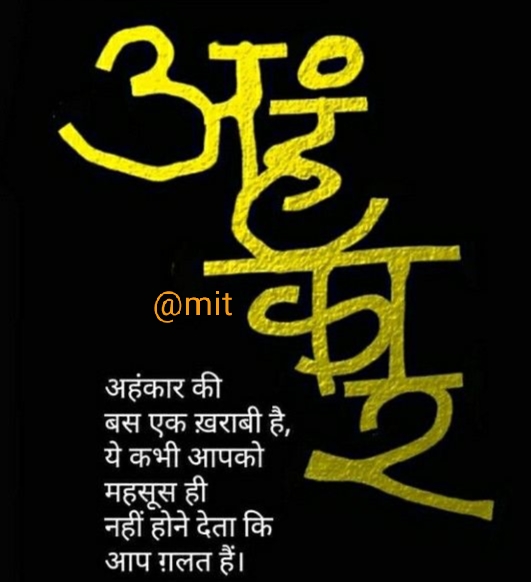 अहंकार
@mit
अहंकार की
बस एक ख़राबी है,
ये कभी आपको
महसूस ही
नहीं होने देता कि
आप ग़लत हैं।